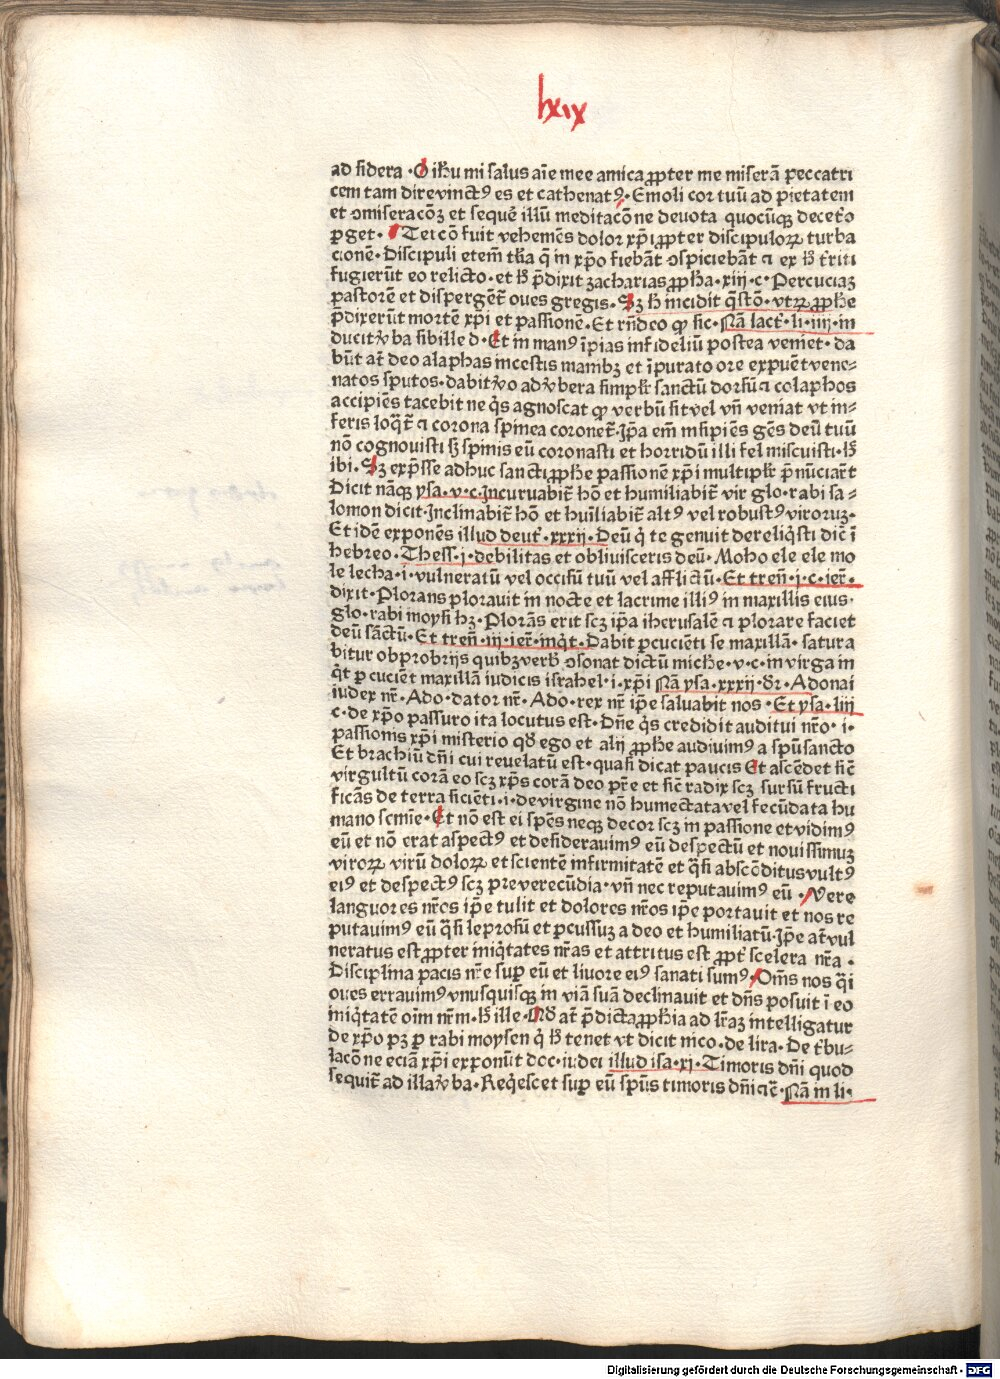 lxix
ad sidera · O ihū mi salus aīe mee amica ꝓpter me miserā peccatri
cem tam dire vinctꝰ es et cathenatꝰ · Emoli cor tuū ad pietatem
et ꝯmiseracōꝫ et sequē illū meditacōne deuota quocūqꝫ deceto
ꝑget · Teicō fuit vehemēs dolor xp̄i ꝓpter discipuloꝝ turba
cionē · Discipuli etem̄ tr̄ia q̄ in xp̄o fiebāt ꝯspiciebāt ⁊ ex ħ tr̄iti
fugierūt eo relicto · et ħ p̄dixit zacharias ꝓpħa · xiij · c · Percuciaꝫ
pastorē et dispergēt̄ oues gregis · Sꝫ ħ incidit q̄stō · vtꝝ ꝓpħe
p̄dixerūt mortē xp̄i et passionē · Et rn̄deo ꝙ sic · Nā lact̄ · li · iiij · in
ducit v̓ba sibille d · Et in manꝰ īpias infideliū postea veniet · da
būt at̄ deo alaphas incestis manibꝫ et īpurato ore expuēt vene-
natos sputos · dabit v̓o ad v̓bera simpl̄r sanctū dorsū ⁊ colaphos
accipiēs tacebit ne q̓s agnoscat ꝙ verbū sit vel vn̄ veniat vt in-
feris loq̄t̄ ⁊ corona spinea coronet̄ · Ip̄a em̄ insipiēs gēs deū tuū
nō cognouisti sꝫ spinis eū coronasti et horridū illi fel miscuisti · ħ
ibi · Sꝫ exp̄sse adhuc sancti ꝓpħe passionē xp̄i multipl̄r p̄nūciar̄t
Dicit nāqꝫ ysa · v · c · Incuruabit̄ hō et humiliabit̄ vir glo · rabi sa-
lomon dicit · Inclinabit̄ hō et hūiliabit̄ altꝰ vel robustꝰ viroruꝫ ·
Et idē exponēs illud deut̄ · xxxij · Deū q̓ te genuit dereliq̓sti dic̄ ī
hebreo · Thess · j · debilitas et obliuisceris deū · Moho ele ele mo
le lecha · i · vulneratū vel occisū tuū vel afflictū · Et tren̄ · j · c · ier̄ ·
dixit · Plorans plorauit in nocte et lacrime illiꝰ in maxillis eius ·
glo · rabi moysi hꝫ · Plorās erit scꝫ ip̄a iherusalē ⁊ plorare faciet
deū sāctū · Et tren̄ · iij · ier̄ · inq̓t · Dabit ꝑcuciēti se maxillā · satura
bitur obprobrijs quibꝫ verb̄ ꝯsonat dictū miche · v · c · in virga in
q̓t ꝑcuciēt maxillā iudicis israhel · i · xp̄i Nā ysa · xxxij · dr̄ · Adonai
iudex nr̄ · Ado · dator nr̄ · Ado · rex nr̄ ip̄e saluabit nos · Et ysa · liij
c · de xp̄o passuro ita locutus est · Dn̄e q̓s credidit auditui nr̄o · i ·
passionis xp̄i misterio qd̄ ego et alij ꝓpħe audiuimꝰ a spū sancto
Et brachiū dn̄i cui reuelatū est · quasi dicat paucis Et ascēdet sic̄
virgultū corā eo scꝫ xp̄s corā deo pr̄e et sic̄ radix scꝫ sursū fructi
ficās de terra siciēti · i · de virgine nō humectata vel fecūdata hu
mano semīe · Et nō est ei spēs neqꝫ decor scꝫ in passione et vidimꝰ
eū et nō erat aspectꝰ et desiderauimꝰ eū despectū et nouissimuꝫ
viroꝝ virū doloꝝ et scientē infirmitatē et q̄si abscōditus vultꝰ
eiꝰ et despectꝰ scꝫ pre verecūdia · vn̄ nec reputauimꝰ eū · Vere
languores nr̄os ip̄e tulit et dolores nr̄os ip̄e portauit et nos re
putauimꝰ eū q̄si leprosū et ꝑcussuꝫ a deo et humiliatū · Ip̄e at̄ vul
neratus est ꝓpter iniq̓tates nr̄as et attritus est ꝓpt̄ scelera nr̄a ·
Disciplina pacis nr̄e suꝑ eū et liuore eiꝰ sanati sumꝰ · Om̄s nos q̄i
oues errauimꝰ vnusquisqꝫ in viā suā declinauit et dn̄s posuit ī eo
iniq̓tatē oīm nr̄m · ħ ille · Qd̄ at̄ p̄dicta ꝓpħia ad lr̄aꝫ intelligatur
de xp̄o pꝫ ꝑ rabi moysen q̓ ħ tenet vt dicit nico · de lira · De tr̄bu-
lacōne eciā xp̄i exponūt doc · iudei illud isa · xj · Timoris dn̄i quod
sequit̄ ad illa v̓ba · Req̓escet suꝑ eū spūs timoris dn̄i ⁊c̄ · Nā in li ·
Digitalisierung gefördert durch die Deutsche Forschungsgemeinschaft - DFG